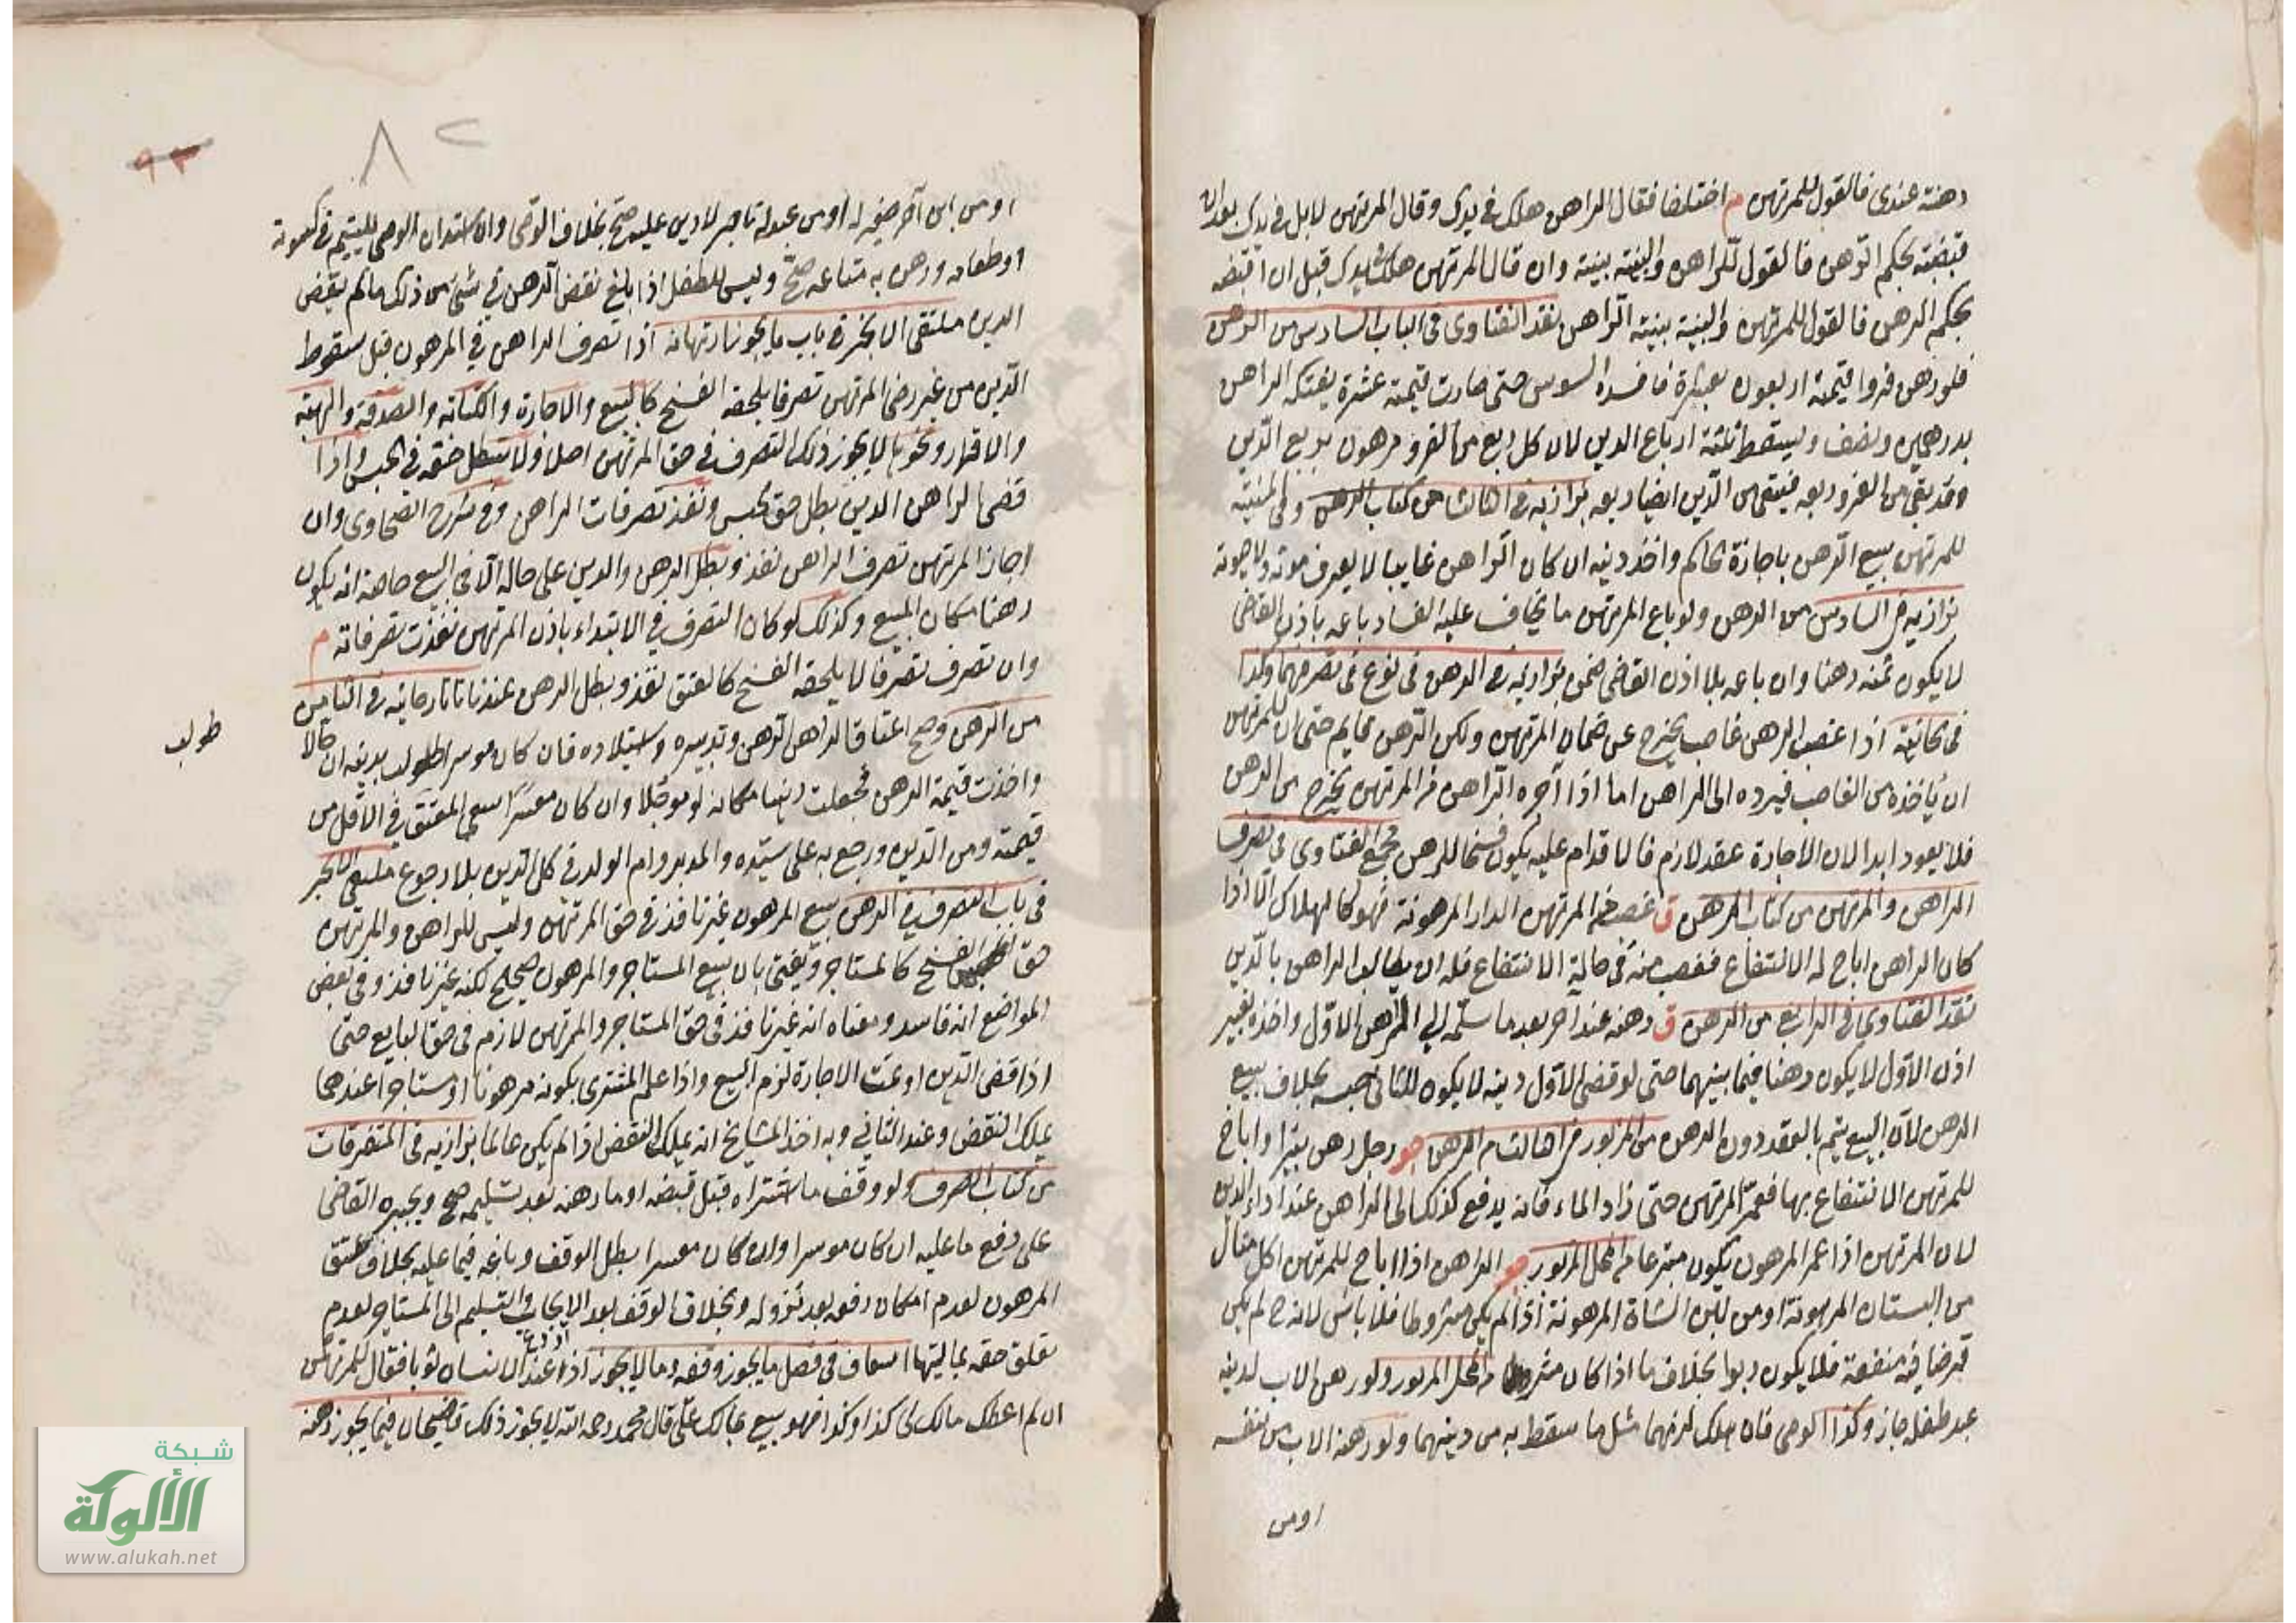 رهنته عندى فالقول للمرتهن م اختلفا فقال الراهن هلك فى يدك وقال المرتهن لا بل فى يدك بعد ان
قبضته بحكم الرهن فالقول للراهن والبينة بينته وان قال المرتهن هلك بيدك قبل ان اقبضه
بحكم الرهن فالقول للمرتهن والبينة بينة الراهن نقد الفتاوى فى الباب السادس من الرهن
فلو رهن فروا قيمته اربعون بعشرة فافسده السوس حتى صارت قيمته عشرة يفتكه الراهن
بدرهمين ونصف ويسقط ثلثة ارباع الدين لان كل ربع من الفرو مرهون بربع الدين
وقد بقى من الفرو ربعه فيبقى من الدين ايضا ربعه بزازيه فى الثالث من كتاب الرهن وفى المنية
للمرتهن بيع الرهن باجازة الحاكم واخذ دينه ان كان الراهن غايبا لا يعرف موته ولا حيوته
بزازيه فى السادس من الرهن ولو باع المرتهن ما يخاف عليه الفساد باعه باذن القاضى
لا يكون ثمنه رهنا وان باعه بلا اذن القاضى ضمن بزازيه فى الرهن فى نوع فى تصرفهما وكذا
فى الخانية اذا غصب الرهن غاصب يخرج عن ضمان المرتهن ولكن الرهن قايم حتى ان للمرتهن
ان ياخذه من الغاصب فيرده الى الراهن اما اذا آجره الراهن من المرتهن يخرج من الرهن
فلا يعود ابدا لان الاجارة عقد لازم فالاقدام عليه يكون فسخا للرهن مجمع الفتاوى فى تصرف
الراهن والمرتهن من كتاب الرهن ق غصب المرتهن الدار المرهونة فهو كالهلاك الا اذا
كان الراهن اباح له الانتفاع فغصب منه فى حالة الانتفاع فله ان يطالب الراهن بالدين
نقد الفتاوى فى الرابع من الرهن ق رهنه عند آخر بعد ما سلمه الى المرتهن الاول واخذه بغير
اذن الاول لا يكون رهنا فيما بينهما حتى لو قضى الاول دينه لا يكون للثانى حبسه بخلاف بيع
الرهن لان البيع يتم بالعقد دون الرهن من المزبور رجل رهن بئرا واباح
للمرتهن الانتفاع بها فعمر المرتهن حتى زاد الماء فانه يدفع كذلك الى الراهن عند اداء الدين
لان المرتهن اذا عمر المرهون يكون متبرعا من المحل المزبور الراهن اذا اباح للمرتهن اكل
من البستان المرهونة او من لبن الشاة المرهونة اذا لم يكن مشروطا فلا باس لانه ح لم يكن
قرضا فيه منفعة فلا يكون ربوا بخلاف ما اذا كان مشروطا من المحل المزبور ولو رهن الاب لدينه
عبد طفله جاز وكذا الوصى فان هلك لزمهما مثل ما سقط به من دينهما ولو رهنه الاب من نفسه
اومن
٨٢
٩٣
او من ابن آخر صغير له او من عبد له تاجر لا دين عليه صح بخلاف الوصى وان استدان الوصى لليتيم فى كسوته
او طعامه ورهن به متاعه صح وليس للطفل اذا بلغ نقض الرهن فى شئ من ذلك ما لم يقض
الدين ملتقى الابحر فى باب ما يجوز ارتهانه اذا تصرف الراهن فى المرهون قبل سقوط
الدين من غير رضى المرتهن تصرفا يلحقه الفسخ كالبيع والاجارة والكتابة والصدقة والهبة
والاقرار ونحوها لا يجوز ذلك التصرف فى حق المرتهن اصلا ولا يبطل حقه فى الحبس واذا
قضى الراهن الدين بطل حق الحبس ونفذ تصرفات الراهن وفى شرح الطحاوى وان
اجاز المرتهن تصرف الراهن نفذ وبطل الرهن والدين على حاله الا فى البيع خاصة انه يكون
رهنا مكان المبيع وكذلك لو كان التصرف فى الابتداء باذن المرتهن نفذت تصرفاته م
وان تصرف تصرفا لا يلحقه الفسخ كالعتق نفذ وبطل الرهن عندنا تاتارخانيه فى الثامن
من الرهن وصح اعتاق الراهن الرهن وتدبيره واستيلاده فان كان موسرا طولب بدينه ان حالا
طولب
واخذت قيمة الرهن فجعلت رهنا مكانه لو مؤجلا وان كان معسرا سعى المعتق فى الاقل من
قيمته ومن الدين ورجع به على سيده والمدبر وام الولد فى كل الدين بلا رجوع ملتقى الابحر
فى باب التصرف فى الرهن بيع المرهون غير نافذ فى حق المرتهن وليس للراهن والمرتهن
حق الفسخ كالمستاجر ويفتى بان بيع المستاجر والمرهون صحيح لكنه غير نافذ وفى بعض
المواضع انه فاسد ومعناه انه غير نافذ فى حق المستاجر والمرتهن لازم فى حق البايع حتى
اذا قضى الدين او تمت الاجارة لزم البيع واذا علم المشترى بكونه مرهونا او مستاجرا عندهما
يملك النقض وعند الثانى وبه اخذ المشايخ انه يملك النقض اذا لم يكن عالما بزازيه فى المتفرقات
من كتاب الصرف ولو وقف ما اشتراه قبل قبضه او ما رهنه بعد تسليمه صح ويجبره القاضى
على دفع ما عليه ان كان موسرا وان كان معسرا بطل الوقف وباعه فيما عليه بخلاف عتق
المرهون لعدم امكان رفعه بعد نزوله وبخلاف الوقف بعد الايجار والتسليم الى المستاجر لعدم
تعلق حقه بماليتها اسعاف فى فصل ما يجوز وقفه وما لا يجوز اذا اودع عند الانسان ثوبا فقال للمرتهن
ان لم اعطك مالك الى كذا وكذا فهو بيع بمالك على قال محمد رحمه الله لا يجوز ذلك قاضيخان فيما يجوز رهنه
شبكة
الألوكة
www.alukah.net